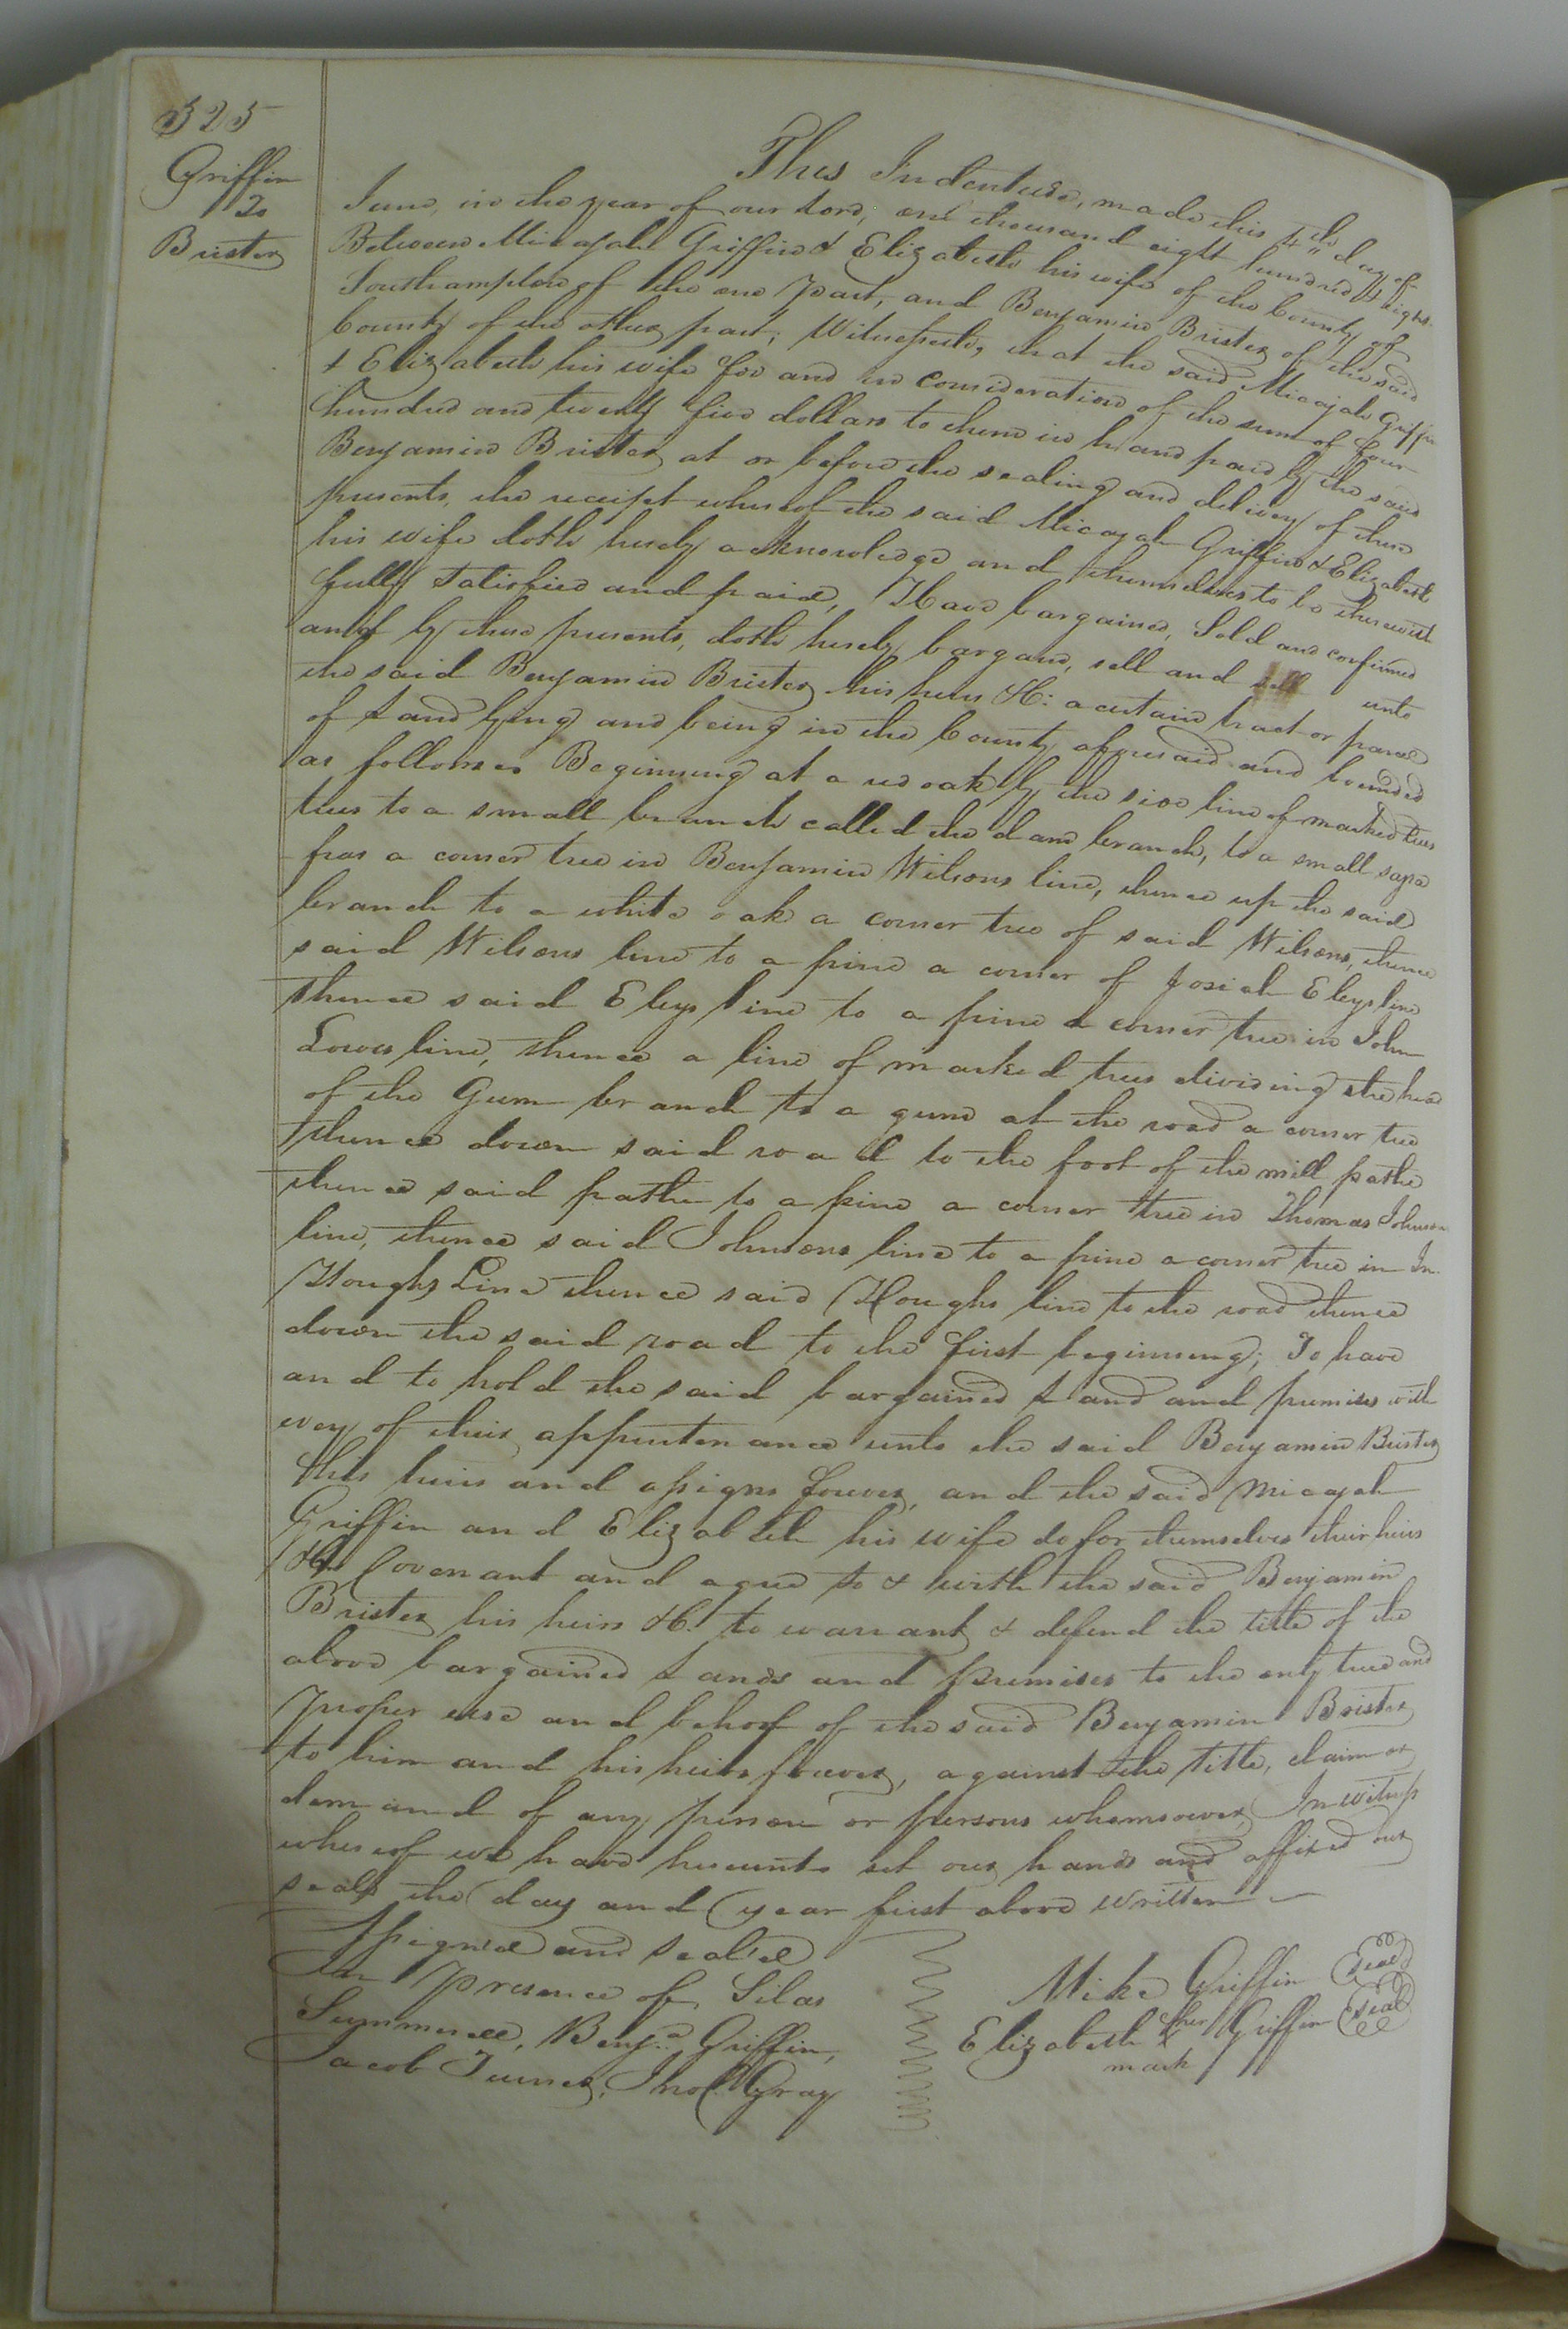 325
Griffin
To
Brister
This Indenture, made this 4th day of
June, in the year of our Lord, one thousand eight hundred & eight
Between Micajah Griffin & Elizabeth his wife of the County of
Southampton of the one part, and Benjamin Brister of the said
County of the other part; Witnesseth, that the said Micajah Griffin
& Elizabeth his wife for and in consideration of the sum of four
hundred and twenty five dollars to them in hand paid by the said
Benjamin Brister at or before the sealing and delivery of these
presents, the receipt whereof the said Micajah Griffin & Elizabeth
his wife doth hereby acknowledge and themselves to be therewith
fully satisfied and paid, Have bargained, Sold and confirmed
and by these presents, doth hereby bargain, sell and sell unto
the said Benjamin Brister his heirs &C: a certain tract or parcel
of Land lying and being in the County aforesaid and bounded
as follows Beginning at a red oak by the side line of marked trees
trees to a small branch called the dam branch, to a small sapa
fras a corner tree in Benjamin Wilsons line, thence up the said
branch to a white oak a corner tree of said Wilsons, thence
said Wilsons line to a pine a corner of Josiah Eleys line
thence said Eleys line to a pine a corner tree in John
Lowes line, thence a line of marked trees dividing the head
of the Gum branch to a gum at the road a corner tree
thence down said road to the foot of the mill path
thence said path to a pine a corner tree in Thomas Johnson
line, thence said Johnsons line to a pine a corner tree in Jn.
Houghs Line thence said Houghs line to the road thence
down the said road to the first beginning; To have
and to hold the said bargained Land and premises with
evey of their appurtenance unto the said Benjamin Brister
his heirs and assigns forever, and the said Micajah
Griffin and Elizabeth his wife do for themselves their heirs
&C Covenant and agree to & with the said Benjamin
Brister his heirs &C. to warrant & defend the title of the
above bargained Lands and premises to the only true and
proper use and behoof of the said Benjamin Brister
to him and his heirs forever, against the title, claim or
demand of any person or persons whomsoever, In witness
whereof we have hereunto set our hands and affixed our
seals the day and year first above written
Signed and sealed
In presence of Silas
Summerell, Benja Griffin,
Jacob Turner, Jno. Gray
Mike Griffin Seal
Elizabeth her x mark Griffin Seal